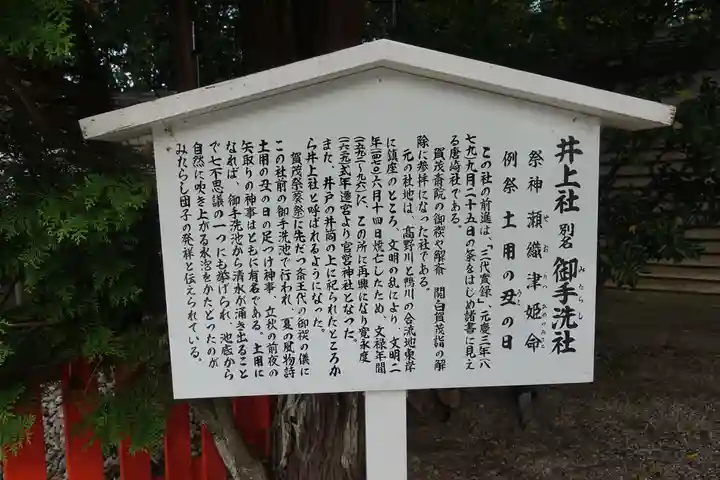 井上社 別名 御手洗社
みたらし
祭神 瀬織津姫命
せおりつひめのみこと
例祭 土用の丑の日
うし
この社の前進は、「三代實録」、元慶三年(八
七九)九月二十五日の条をはじめ諸書に見え
る唐崎社である。
賀茂斎院の御禊や解斎、関白賀茂詣の解
除に参拝になった社である。
元の社地は、高野川と鴨川の合流地東岸
に鎮座のところ、文明の乱により、文明二
年(一四七〇)六月十四日焼亡したため、文禄年間
(一五九二〜九六)に、この所に再興になり寛永度
(一六二九)式年遷宮より官営神社となった。
また、井戸の井筒の上に祀られたところか
ら井上社と呼ばれるようになった。
賀茂祭(葵祭)に先だつ斎王代の御禊の儀に
この社前の御手洗池で行われ、夏の風物詩
土用の丑の日の足つけ神事、立秋の前夜の
矢取りの神事はともに有名である。土用に
なれば、御手洗池から清水が湧き出ること
で七不思議の一つにも挙げられ、池底から
自然に吹き上がる水泡をかたどったのが
みたらし団子の発祥と伝えられている。